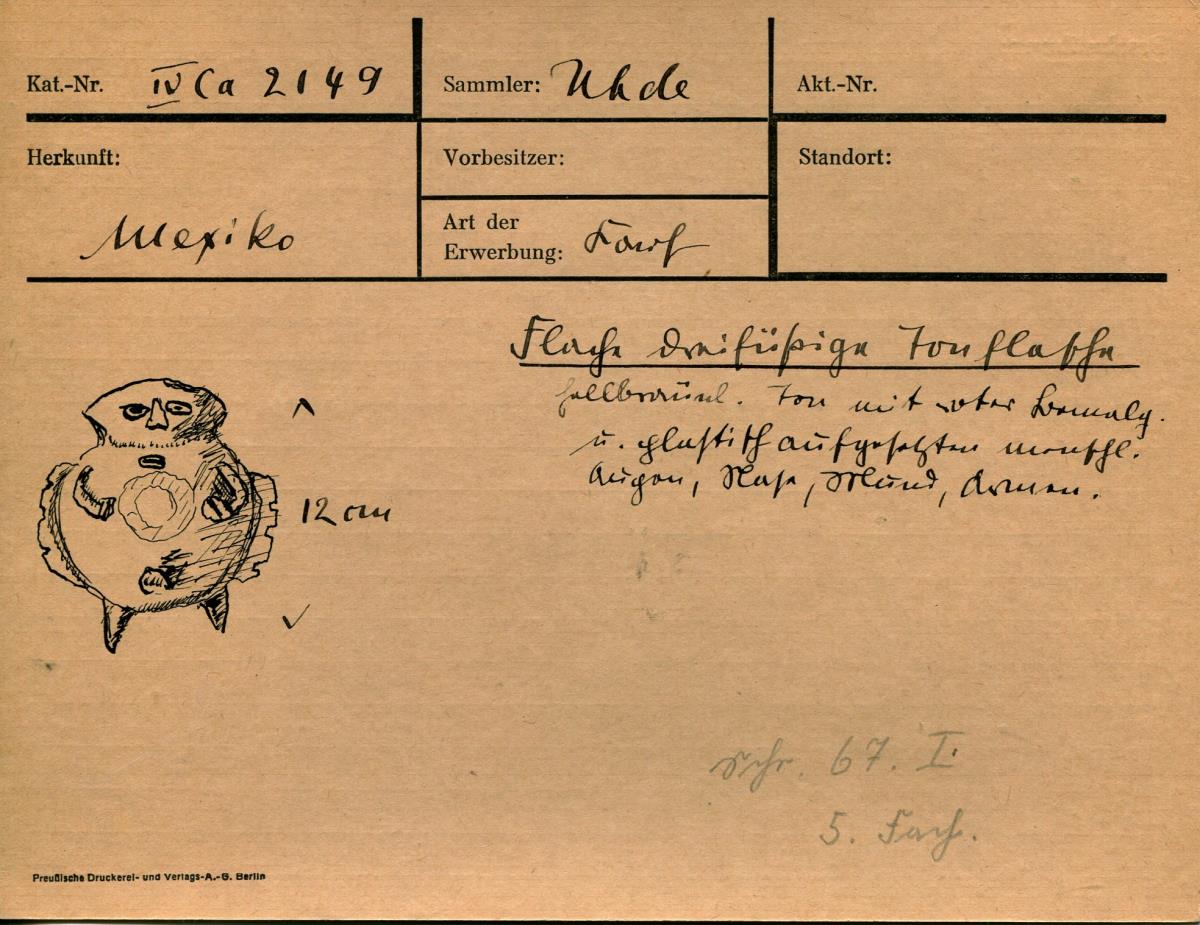 Kat.-Nr. IV Ca 2149
Sammler: Uhde
Akt.-Nr.
Herkunft:
Mexiko
Vorbesitzer:
Art der
Erwerbung: Kauf
Standort:
Flache dreifüßige Tonflasche
hellbräunl. Ton mit roter Bemalg.
u. plastisch aufgesetzten menschl.
Augen, Nase, Mund, Armen.
12 cm
Schr. 67. I.
5. Fach.
Preußische Druckerei- und Verlags-A.-G. Berlin